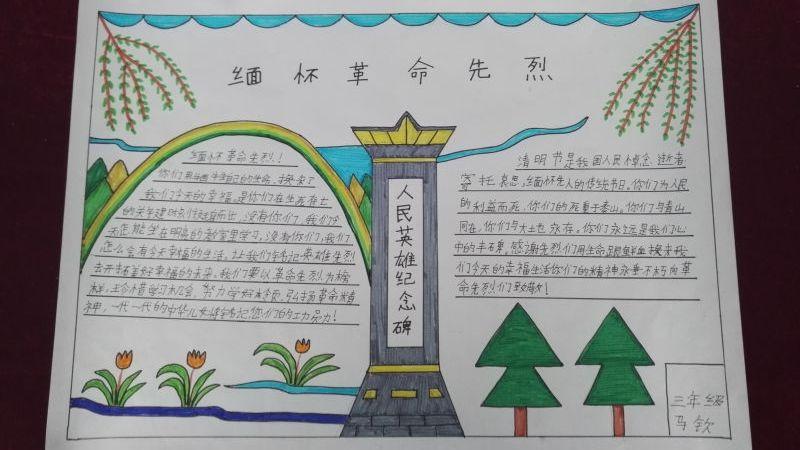 缅怀革命先烈
缅怀革命先烈!
你们用牺牲自己的生命,换来了
我们今天的幸福。是你们在生死存亡
的关键时刻挺身而出,没有你们,我们今
天怎能坐在明亮的教室里学习,没有你们,我们
怎么会有今天幸福的生活。让我们牢记英雄先烈
去开拓美好幸福的未来。我们要以革命先烈为榜
样,珍惜学习机会,努力学好本领,弘扬革命精
神,一代一代的中华儿女将牢记您们的功力!
人民英雄纪念碑
清明节是我国人民悼念逝者
寄托哀思,缅怀先人的传统节日。你们为人民
的利益而死,你们的死重于泰山。你们与青山
同在,你们与大土也永存。你们永远是我们心
中的丰碑。感谢先烈们用生命跟鲜血换来我
们今天的幸福生活你们的精神永垂不朽向革
命先烈们致敬!
三年级
马钦